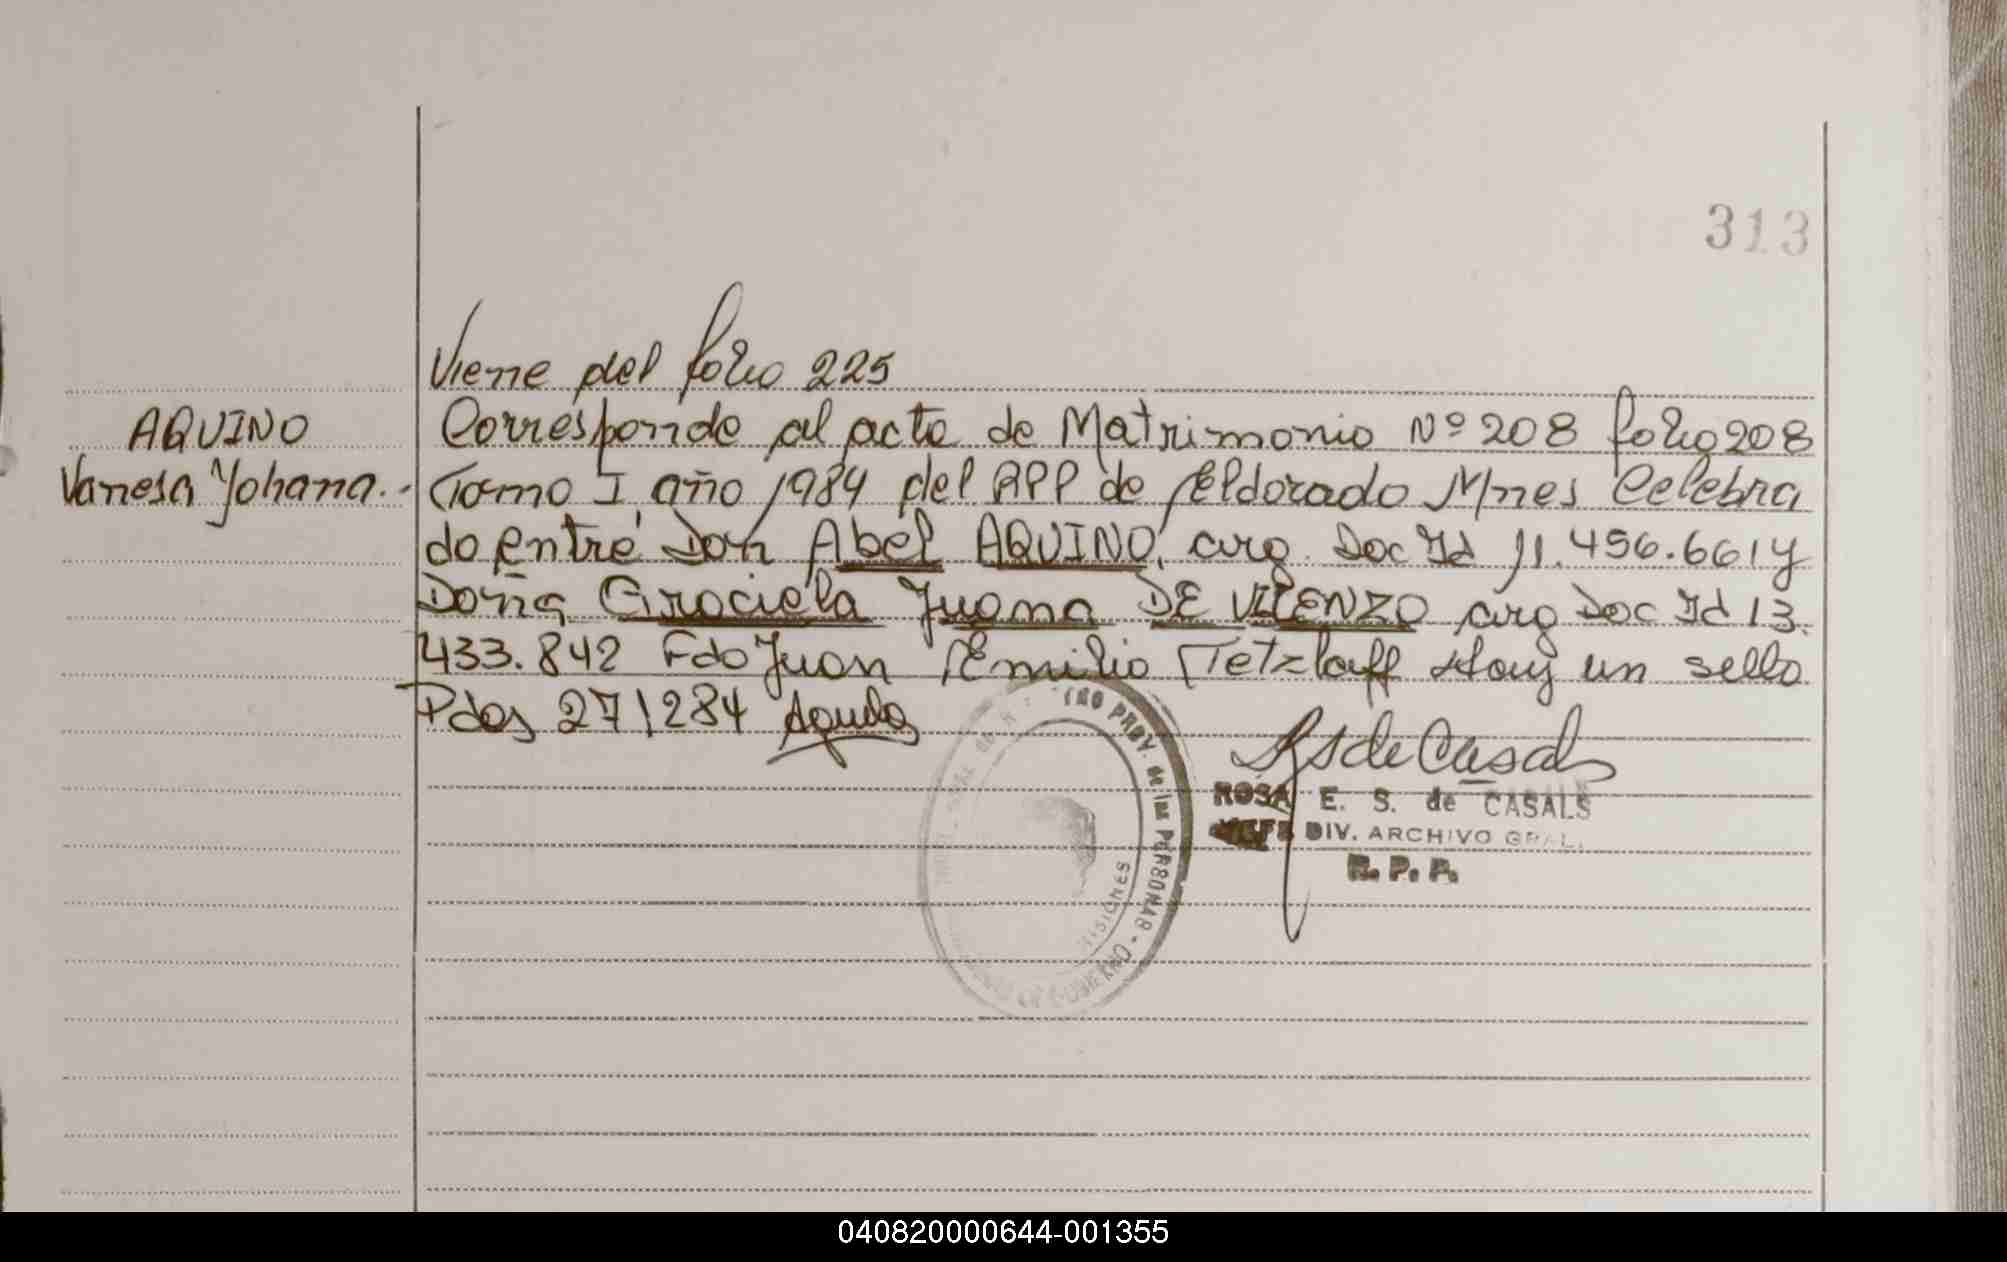 313
Viene del folio 225
AQUINO
Vanesa Yohana.-
Corresponde al acta de Matrimonio Nº 208 folio 208
Tomo I, año 1984 del RPP de Eldorado Mnes Celebra
do entre Don Abel AQUINO, arg. Doc Id 11.456.661 y
Doña Graciela Juana DE VICENZO arg Doc Id 13.
433.842 Fdo Juan Emilio Tetzlaff Hay un sello
Pdas 27/284
RS de Casals
ROSA E. S. de CASALS
JEFE DIV. ARCHIVO GRAL.
R. P. P.
PROV. de las PERSONAS - GOBIERNO
MISIONES
040820000644-001355